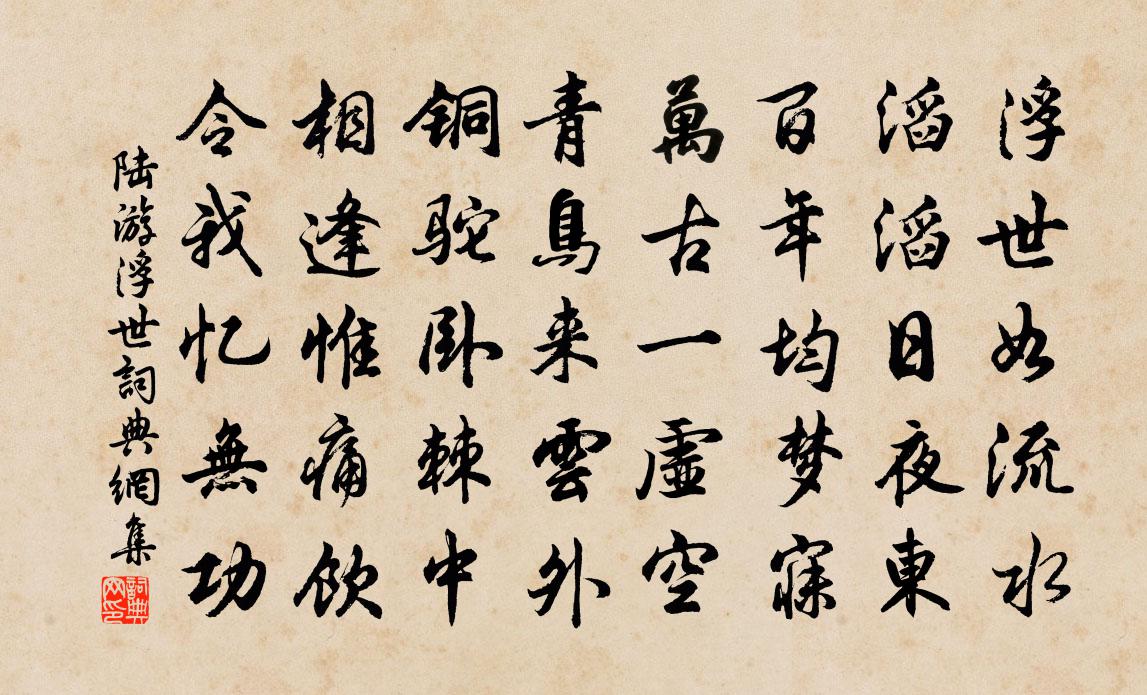 浮世如流水
滔滔日夜東
百年均梦寐
萬古一虛空
青鳥来雲外
铜驼卧棘中
相逢惟痛飲
令我忆無功
陆游浮世詞典網集
詞典网印